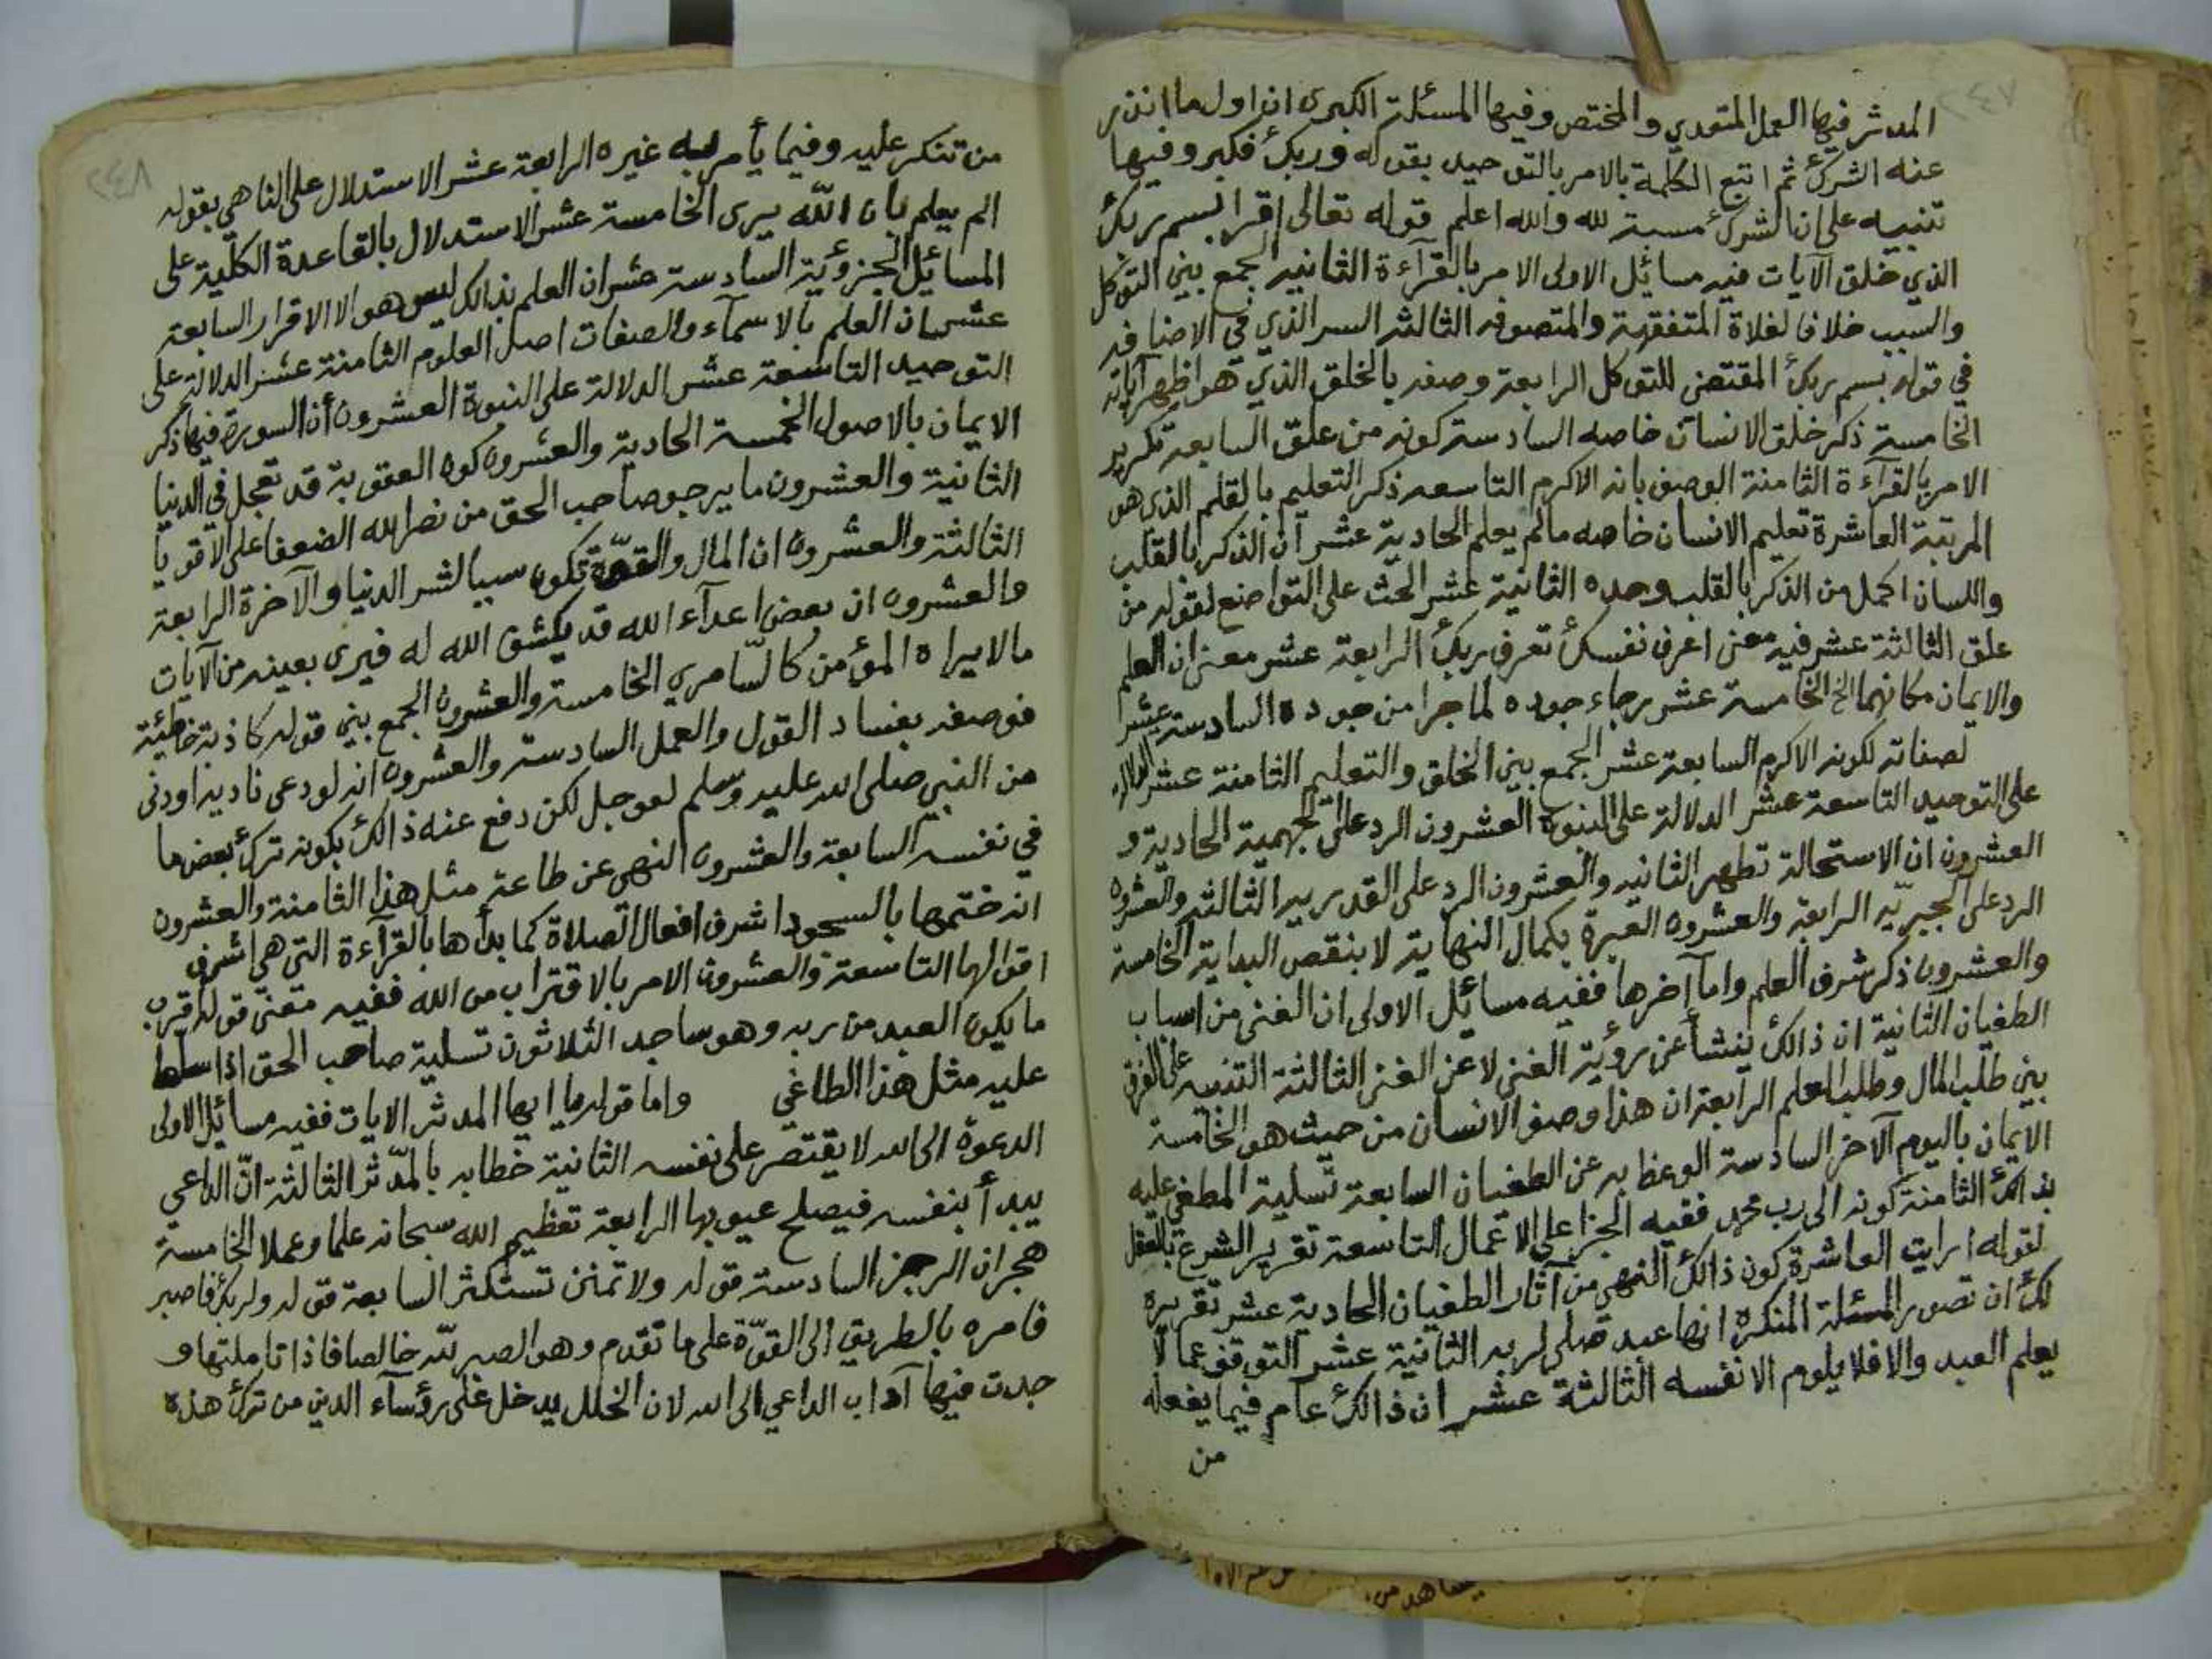 ٢٤٧
المدثر فيها العمل المتعدي والمختص وفيها المسئلة الكبرى ان اول ما انذر
عنه الشرك ثم اتبع الكلمة بالامر بالتوحيد بقوله وربك فكبر وفيها
تنبيه على ان الشرك مسبة لله والله اعلم قوله تعالى اقرا بسم ربك
الذي خلق الآيات فيه مسائل الاولى الامر بالقرآءة الثانيه الجمع بين التوكل
والسبب خلافا لغلاة المتفقهة والمتصوفه الثالثه السر الذي في الاضافه
في قوله بسم ربك المقتضي للتوكل الرابعة وصفه بالخلق الذي هو اظهر آياته
الخامسة ذكر خلق الانسان خاصه السادسة كونه من علق السابعة تكرير
الامر بالقرآءة الثامنة الوصف بانه الاكرم التاسعه ذكر التعليم بالقلم الذي هو
المرتبة العاشرة تعليم الانسان خاصه مالم يعلم الحادية عشر ان الذكر بالقلب
واللسان اكمل من الذكر بالقلب وحده الثانية عشر الحث على التواضع لقوله من
علق الثالثة عشر فيه معنى اعرف نفسك تعرف ربك الرابعة عشر معنى ان العلم
والايمان مكانهما الخ الخامسة عشر رجاء جوده لما جرا من جوده السادسة عشر
لصفاته لكونه الاكرم السابعة عشر الجمع بين الخلق والتعليم الثامنة عشر الدلالة
على التوحيد التاسعة عشر الدلالة على النبوة العشرون الرد على الجهمية الحادية و
العشرون ان الاستحالة تطهر الثانيه والعشرون الرد على القدريه الثالثه والعشرون
الرد على الجبريّه الرابعة والعشرون العبرة بكمال النهاية لا بنقص البداية الخامسة
والعشرون ذكر شرف العلم واما آخرها ففيه مسائل الاولى ان الغنى من اسباب
الطغيان الثانية ان ذالك ينشأ عن رؤية الغنى لا عن الغنى الثالثة التنبيه على الفرق
بين طلب المال وطلب العلم الرابعة ان هذا وصف الانسان من حيث هو الخامسة
الايمان باليوم الآخر السادسة الوعظ به عن الطغيان السابعة تسلية المطغي عليه
بذالك الثامنة كونه الى رب محمد ففيه الجزا على الاعمال التاسعة تقرير الشرع بالعقل
لقوله ارايت العاشرة كون ذالك النهي من آثار الطغيان الحادية عشر تقريره
لك ان تصور المسئلة المنكرة انها عبد صلى لربه الثانية عشر التوقف عما لا
يعلم العبد والا فلا يلوم الا نفسه الثالثة عشر ان ذالك عام فيما يفعله
من
٢٤٨
من تنكر عليه وفيما يأمر به غيره الرابعة عشر الاستدلال على الناهي بقوله
الم يعلم بان الله يرى الخامسة عشر الاستدلال بالقاعدة الكلية على
المسائل الجزؤية السادسة عشر ان العلم بذالك ليس هو الا الاقرار السابعة
عشر ان العلم بالاسمآء والصفات اصل العلوم الثامنة عشر الدلالة على
التوحيد التاسعة عشر الدلالة على النبوة العشرون أن السورة فيها ذكر
الايمان بالاصول الخمسة الحادية والعشرون كون العقوبة قد تعجل في الدنيا
الثانية والعشرون ما يرجو صاحب الحق من نصر الله الضعفا على الاقويا
الثالثة والعشرون ان المال والقوّة تكون سببا لشر الدنيا والآخرة الرابعة
والعشرون ان بعض اعدآء الله قد يكشف الله له فيرى بعينه من الآيات
مالا يراه المؤمن كالسّامري الخامسة والعشرون الجمع بين قوله كاذبة خاطئة
فوصفه بفساد القول والعمل السادسة والعشرون انه لو دعى ناديه او دنى
من النبي صلى الله عليه وسلم لعوجل لكن دفع عنه ذالك بكونه ترك بعض ما
في نفسه السابعة والعشرون النهي عن طاعة مثل هذا الثامنة والعشرون
انه ختمها بالسجود اشرف افعال الصلاة كما بدأها بالقرآءة التي هي اشرف
اقوالها التاسعة والعشرون الامر بالاقتراب من الله ففيه معنى قوله اقرب
ما يكون العبد من ربه وهو ساجد الثلاثون تسلية صاحب الحق اذا سلط
عليه مثل هذا الطاغي واما قوله يا ايها المدثر الايات ففيه مسائل الاولى
الدعوة الى الله لا يقتصر على نفسه الثانية خطابه بالمدّثر الثالثة انّ الداعي
يبدأ بنفسه فيصلح عيوبها الرابعة تعظيم الله سبحانه علما وعملا الخامسة
هجران الرجز السادسة قوله ولا تمنن تستكثر السابعة قوله ولربك فاصبر
فامره بالطريق الى القوّة على ما تقدم وهو الصبر لله خالصا فاذا تاملتها و
جدت فيها آداب الداعي الى الله لان الخلل يدخل على رؤسآء الدين من ترك هذه